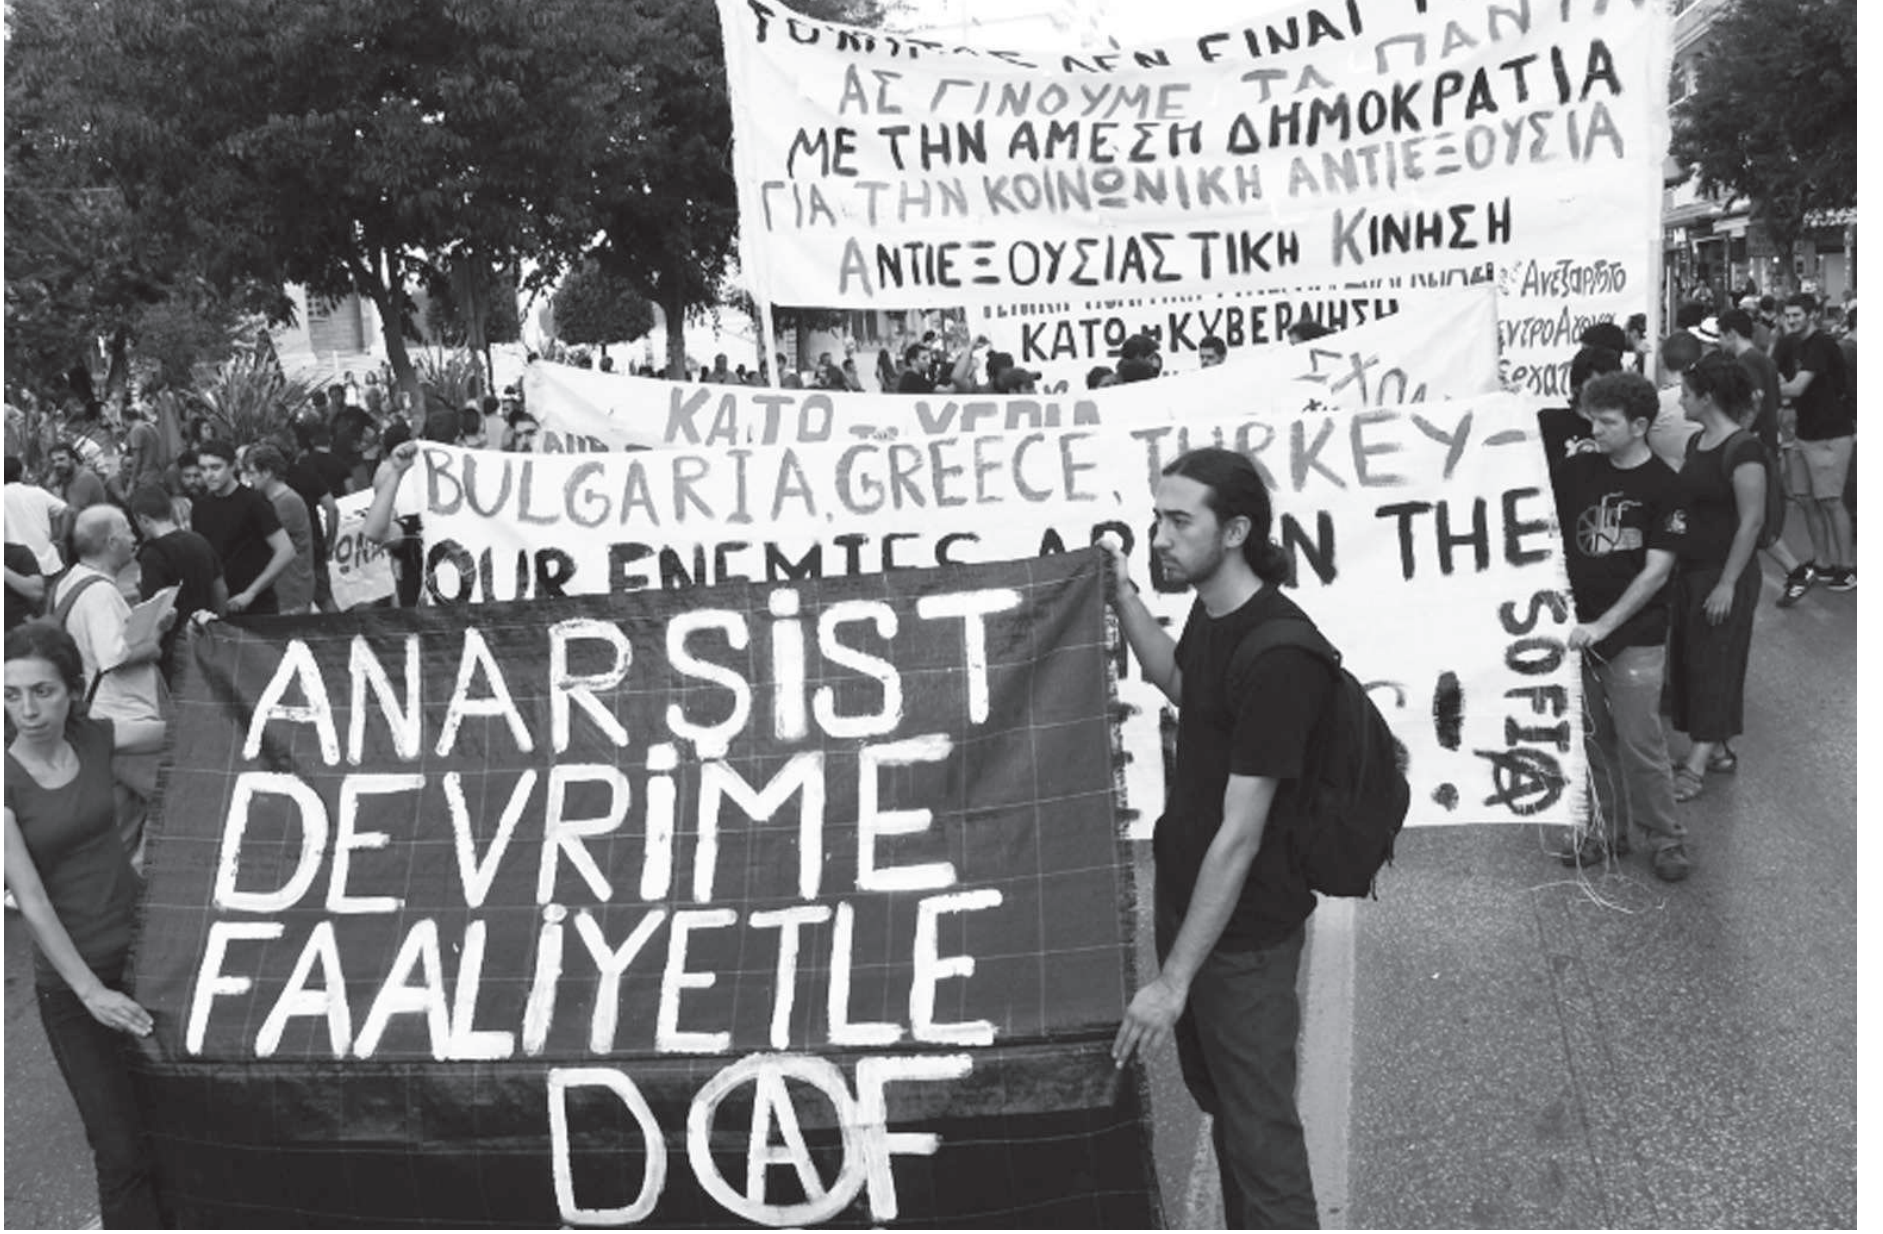 ΔΕΝ ΕΙΝΑΙ
ΑΣ ΓΙΝΟΥΜΕ ΤΑ ΠΑΝΤΑ
ΜΕ ΤΗΝ ΑΜΕΣΗ ΔΗΜΟΚΡΑΤΙΑ
ΓΙΑ ΤΗΝ ΚΟΙΝΩΝΙΚΗ ΑΝΤΙΕΞΟΥΣΙΑ
ΑΝΤΙΕΞΟΥΣΙΑΣΤΙΚΗ ΚΙΝΗΣΗ
Ανεξάρτητο
ΚΑΤΩ η ΚΥΒΕΡΝΗΣΗ
ΚΑΤΩ
BULGARIA, GREECE, TURKEY-
OUR ENEMIES ARE IN THE
!
SOFIA
ANARŞİST
DEVRİME
FAALİYETLE
DAF